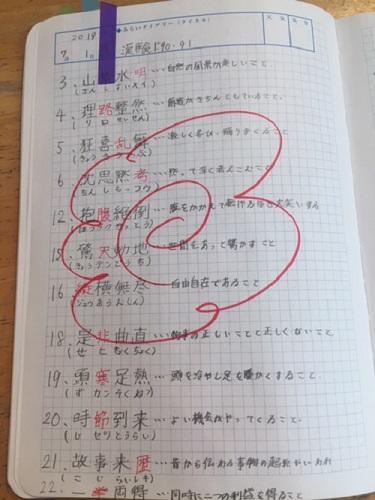 2019
7月 1日 漢検 P90.91
3、山紫水明…自然の風景が美しいこと
(さんしすいメイ)
4、理路整然…筋道がきちんとしていること。
(りロせいぜん)
5、狂喜乱舞…激しく喜び、踊りまくること
6 沈思黙考…黙って深く考えこむこと
(ちんしもっコウ)
12、抱腹絶倒…腹をかかえて転げるほど大笑いする
15、驚天動地…世間をあっと驚かすこと
16、縦横無尽…自由自在であること
(ジュウおうむじん)
18、是非曲直…物事の正しいことと正しくないこと
(ぜヒきょくちょく)
19、頭寒足熱…頭を冷やし足を暖かくすること。
(ずカンそくねつ)
20、時節到来…よい機会がやってくること。
(じセツとうらい)
21、故事来歴…昔から伝わる事物の起源やいわれ
(こじらいレキ)
22、一挙両得…同時に二つの利益を得ること